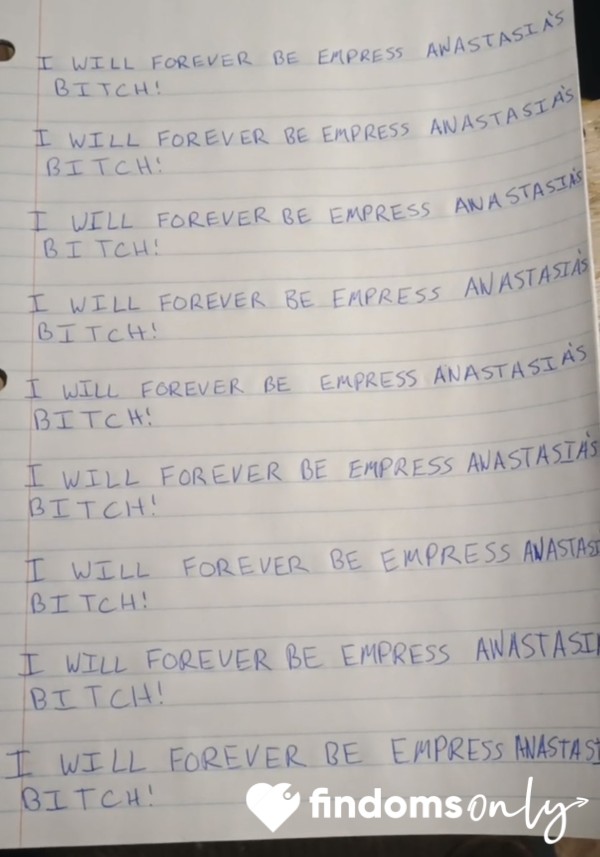 I WILL FOREVER BE EMPRESS ANASTASIA'S
BITCH!
I WILL FOREVER BE EMPRESS ANASTASIA'S
BITCH!
I WILL FOREVER BE EMPRESS ANASTASIA'S
BITCH!
I WILL FOREVER BE EMPRESS ANASTASIA'S
BITCH!
I WILL FOREVER BE EMPRESS ANASTASIA'S
BITCH!
I WILL FOREVER BE EMPRESS ANASTASIA'S
BITCH!
I WILL FOREVER BE EMPRESS ANASTASI
BITCH!
I WILL FOREVER BE EMPRESS ANASTASI
BITCH!
I WILL FOREVER BE EMPRESS ANASTASI
BITCH!
findomsonly